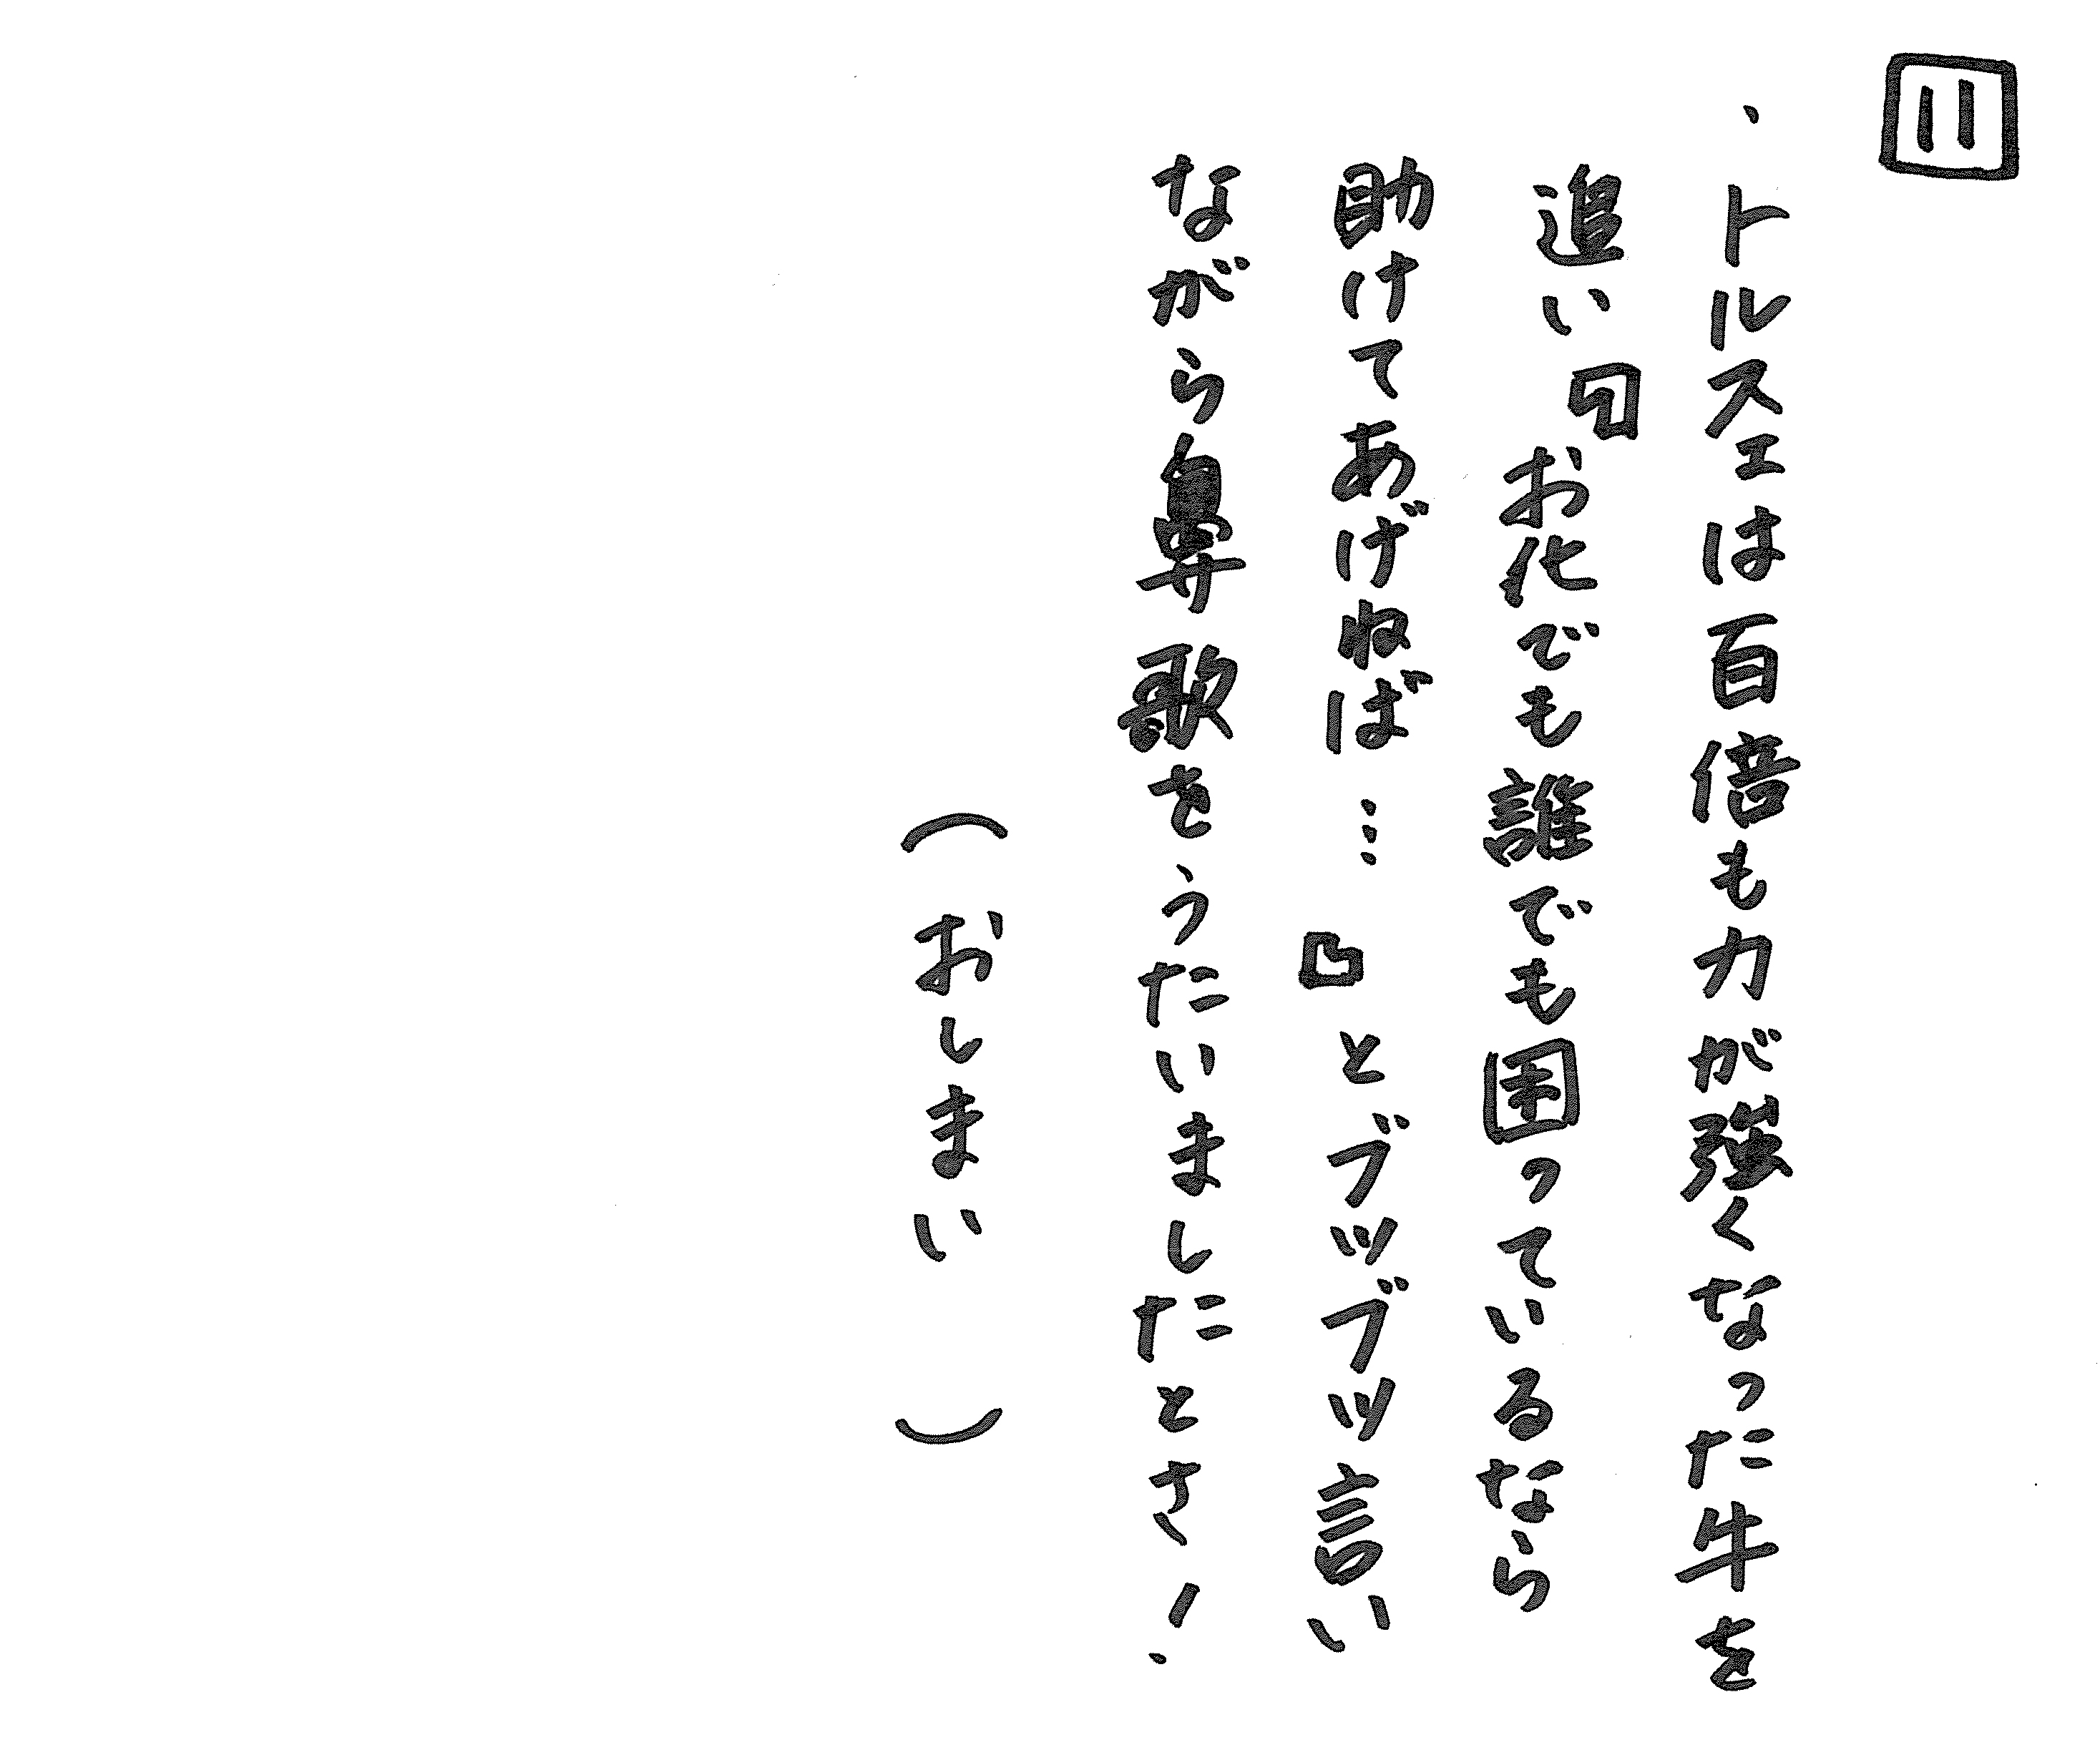 11
・トルスエは百倍も力が強くなった牛を
追い『お化でも誰でも困っているなら
助けてあげねば…』とブツブツ言い
ながら鼻歌をうたいましたとさ!
(おしまい)